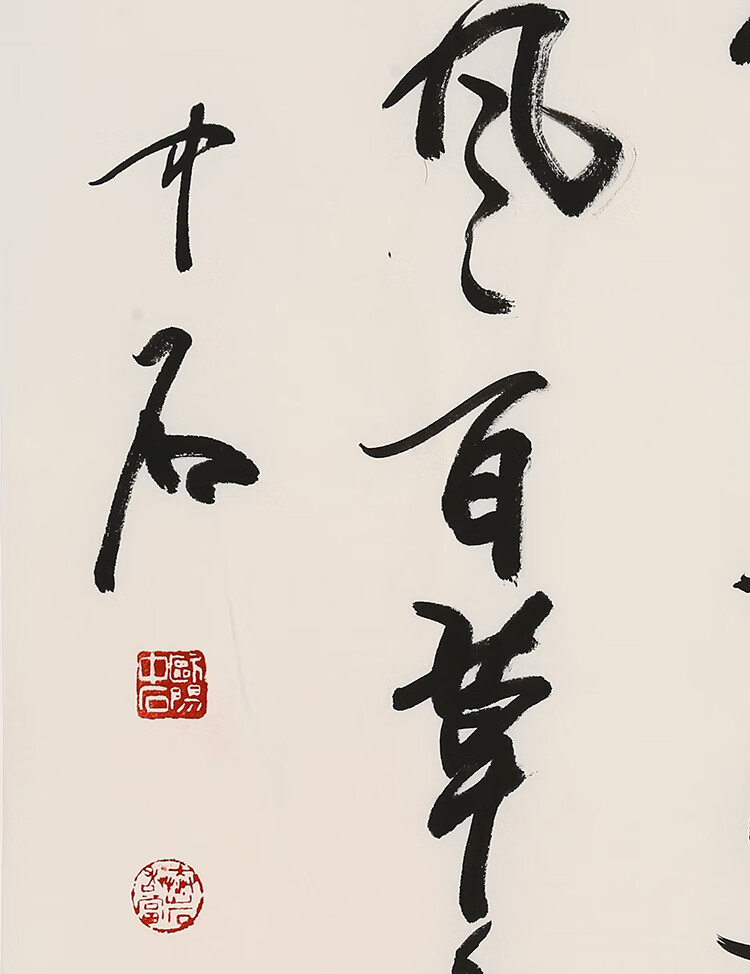 风百草
中石
歐陽中石